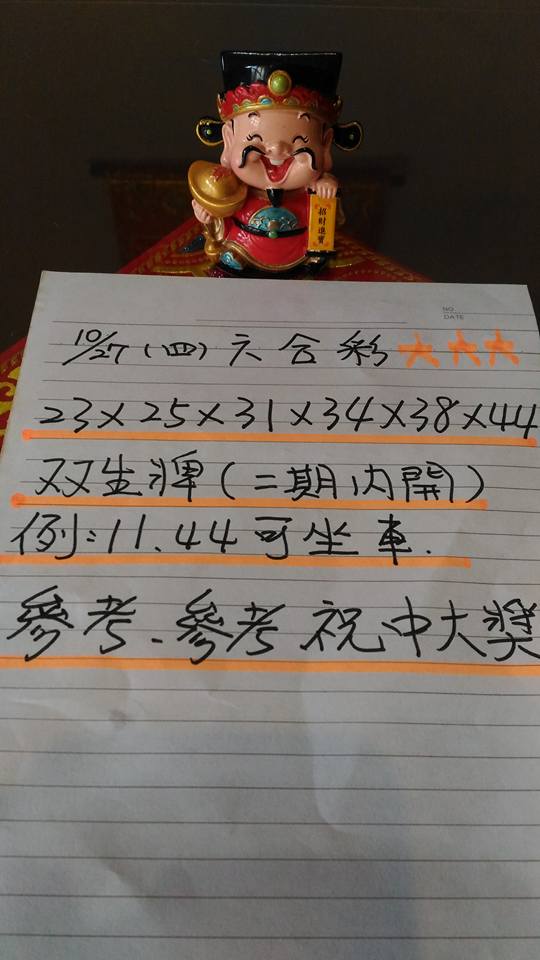 招財進寶
NO.
DATE
10/27 (四) 六合彩
23×25×31×34×38×44
双生牌(二期內開)
例:11.44可坐車.
參考.參考 祝中大獎